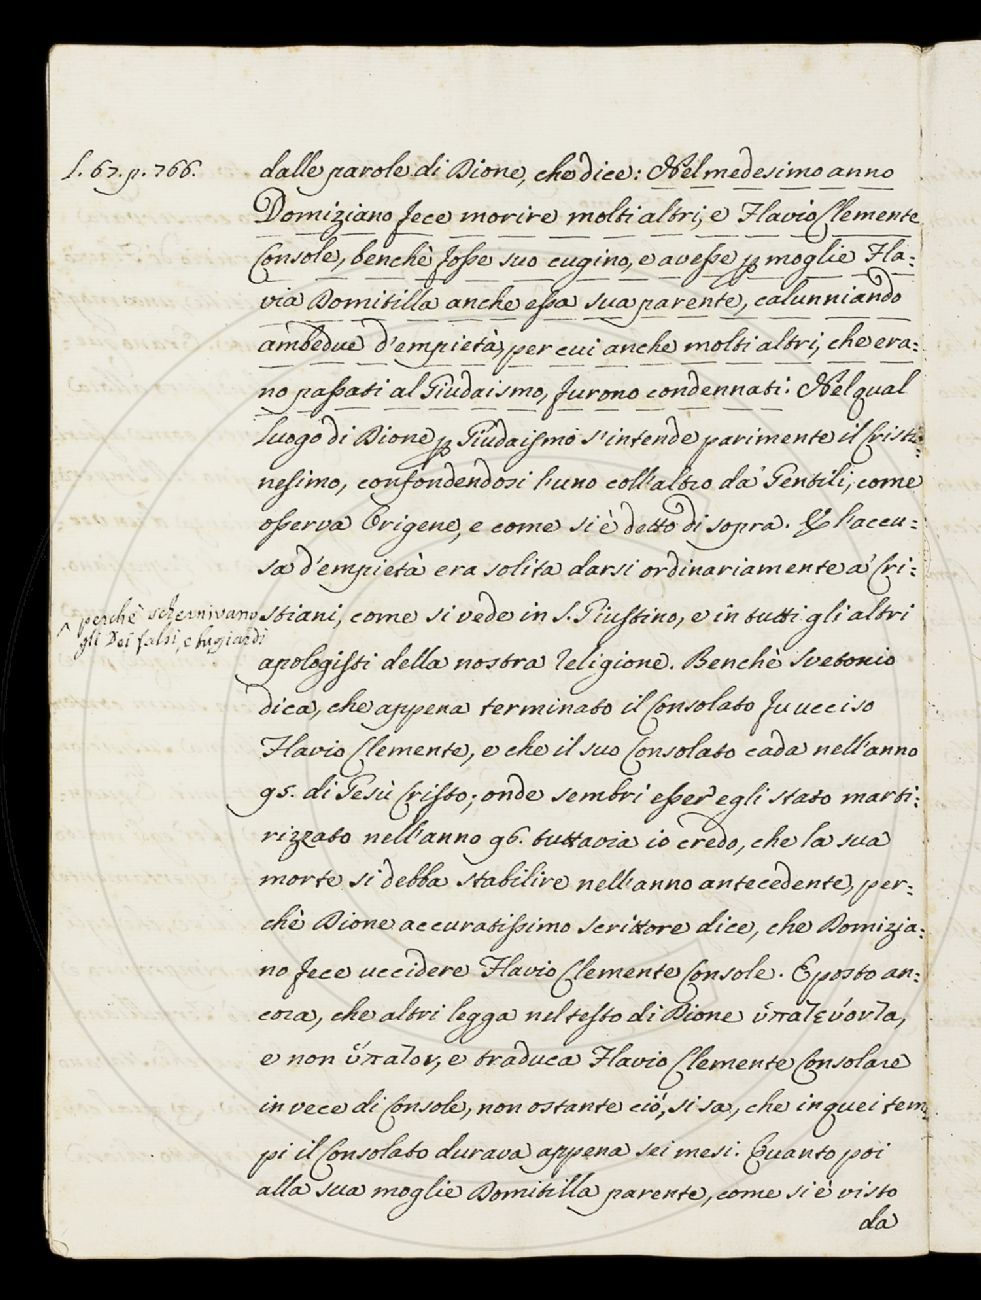 l. 67. p. 766.
dalle parole di Dione, che dice: Nel medesimo anno
Domiziano fece morire molti altri, e Flavio Clemente
Console, benchè fosse suo cugino, e avesse p moglie Fla=
via Domitilla anche essa sua parente, calunniando
ambedue d'empietà, per cui anche molti altri, che era=
no passati al Giudaismo, furono condennati. Nel qual
luogo di Dione p Giudaismo s'intende parimente il Cristia=
nesimo, confondendosi l'uno coll'altro da' Gentili, come
osserva Origene, e come si è detto di sopra. E l'accu=
sa d'empietà era solita darsi ordinariamente a' Cri=
stiani, come si vede in S. Giustino, e in tutti gli altri
^ perchè schernivano
gli Dei falsi, e bugiardi
apologisti della nostra religione. Benchè Svetonio
dica, che appena terminato il Consolato fu ucciso
Flavio Clemente, e che il suo Consolato cada nell'anno
95. di Gesù Cristo; onde sembri esser egli stato marti=
rizzato nell'anno 96. tuttavia io credo, che la sua
morte si debba stabilire nell'anno antecedente, per=
chè Dione accuratissimo scrittore dice, che Domizia=
no fece uccidere Flavio Clemente Console. E posto an=
cora, che altri legga nel testo di Dione ὑπατεύοντα,
e non ὕπατον, e traduca Flavio Clemente Consolare
in vece di Console, non ostante ciò, si sa, che in quei tem=
pi il Consolato durava appena sei mesi. Quanto poi
alla sua moglie Domitilla parente, come si è visto
da